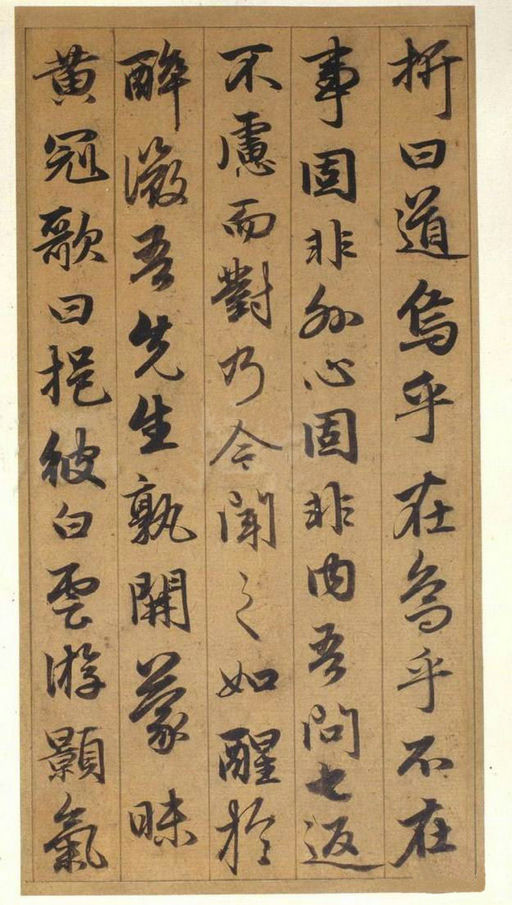 析曰道烏乎在烏乎不在
事固非外心固非内吾問七返
不慮而對乃今聞之如醒於
醉微吾先生孰開蒙昧
黄冠歌曰挹彼白雲游顥氣